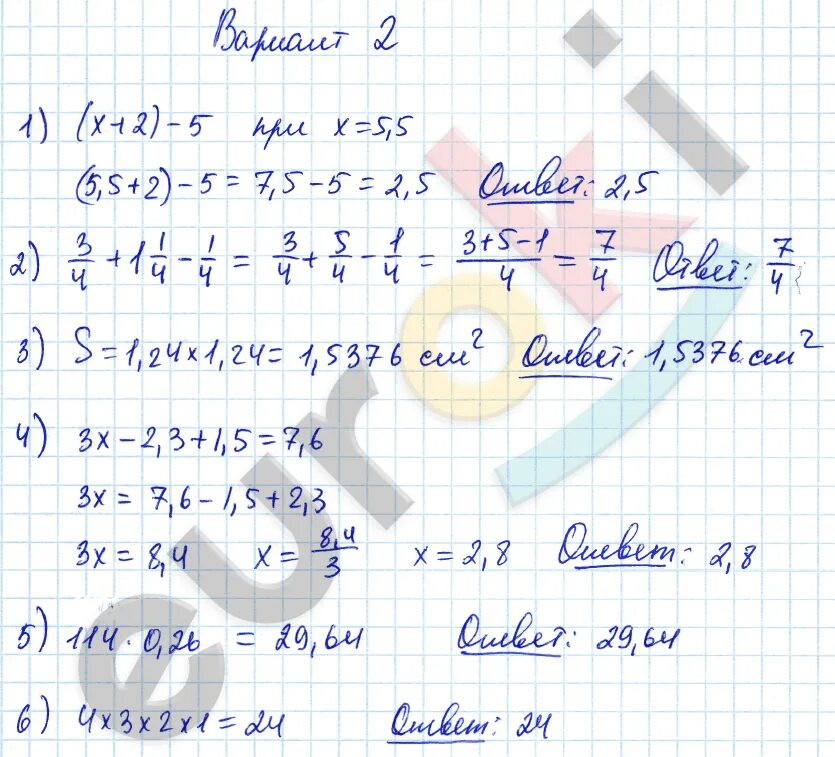 Вариант 2
1) (x+2)-5 при x=5,5
(5,5+2)-5=7,5-5=2,5 Ответ: 2,5
2) 3/4+1 1/4-1/4=3/4+5/4-1/4=(3+5-1)/4=7/4 Ответ: 7/4
3) S=1,24×1,24=1,5376 см² Ответ: 1,5376 см²
4) 3x-2,3+1,5=7,6
3x=7,6-1,5+2,3
3x=8,4 x=8,4/3 x=2,8 Ответ: 2,8
5) 114·0,26=29,64 Ответ: 29,64
6) 4×3×2×1=24 Ответ: 24
euroki